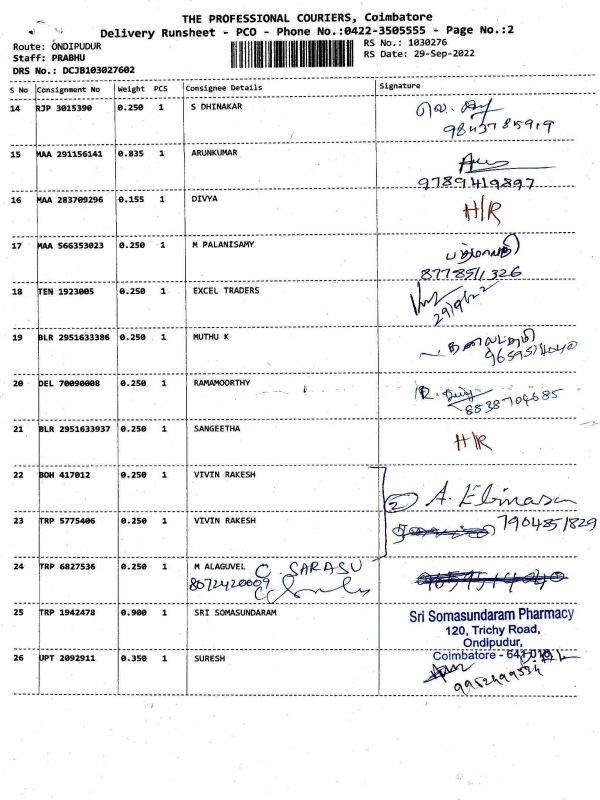 THE PROFESSIONAL COURIERS, Coimbatore
Delivery Runsheet - PCO - Phone No.:0422-3505555 - Page No.:2
Route: ONDIPUDUR
RS No.: 1030276
Staff: PRABHU
RS Date: 29-Sep-2022
DRS No.: DCJB103027602
S No Consignment No Weight PCS Consignee Details Signature
14 RJP 3015390 0.250 1 S DHINAKAR
9843785919
15 MAA 291156141 0.835 1 ARUNKUMAR
9789419897
16 MAA 283709296 0.155 1 DIVYA H/R
17 MAA 566353023 0.250 1 M PALANISAMY
8778511326
18 TEN 1923005 0.250 1 EXCEL TRADERS
29/9/22
19 BLR 2951633386 0.250 1 MUTHU K
9659514040
20 DEL 70090008 0.250 1 RAMAMOORTHY
8838704685
21 BLR 2951633937 0.250 1 SANGEETHA H/R
22 BOH 417012 0.250 1 VIVIN RAKESH
2 A.
23 TRP 5775406 0.250 1 VIVIN RAKESH 7904851829
24 TRP 6827536 0.250 1 M ALAGUVEL C. SARASU
8072420009
25 TRP 1942478 0.900 1 SRI SOMASUNDARAM Sri Somasundaram Pharmacy
120, Trichy Road,
Ondipudur,
26 UPT 2092911 0.350 1 SURESH Coimbatore - 641 016
9952499534